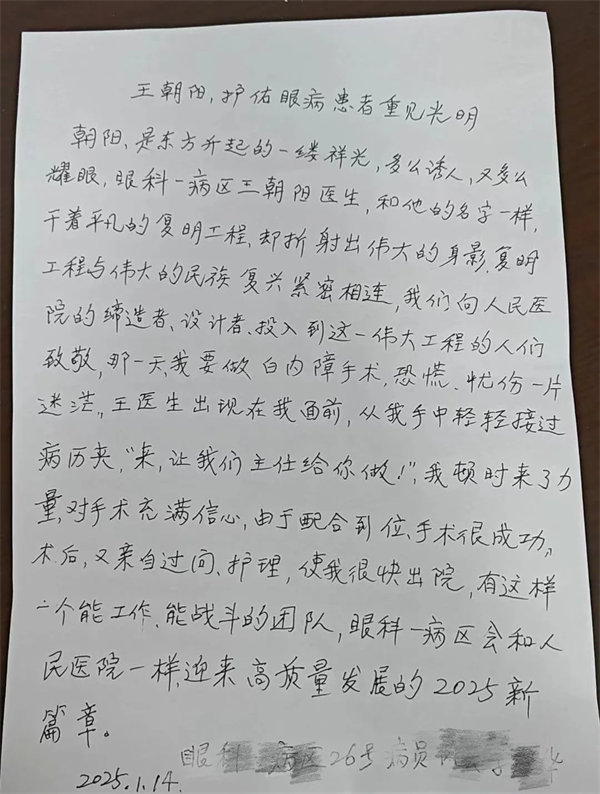 王朝阳，护佑眼病患者重见光明
朝阳，是东方升起的一缕祥光，多么诱人，又多么
耀眼，眼科一病区王朝阳医生，和他的名字一样，
干着平凡的复明工程，却折射出伟大的身影，复明
工程与伟大的民族复兴紧密相连，我们向人民医
院的缔造者、设计者、投入到这一伟大工程的人们
致敬，那一天，我要做白内障手术，恐慌、忧伤一片
迷茫，王医生出现在我面前，从我手中轻轻接过
病历夹，“来，让我们主任给你做！”，我顿时来了力
量，对手术充满信心，由于配合到位、手术很成功，
术后，又亲自过问、护理，使我很快出院，有这样
一个能工作、能战斗的团队，眼科一病区会和人
民医院一样，迎来高质量发展的2025新
篇章。
眼科 病区26号病员
2025.1.14.